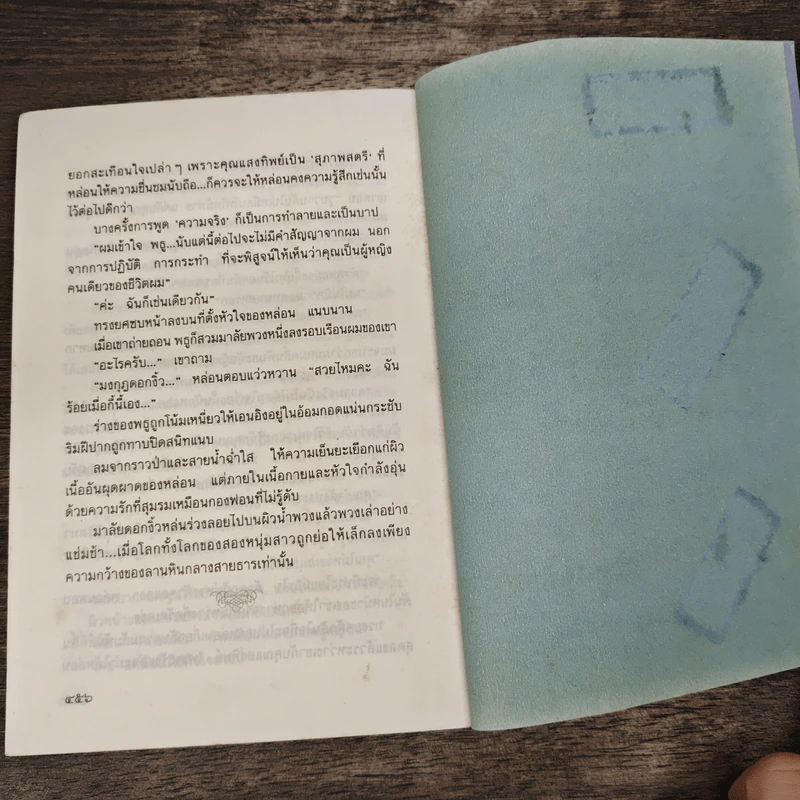 ยอกสะเทือนใจเปล่า ๆ เพราะคุณแสงทิพย์เป็น 'สุภาพสตรี' ที่
หล่อนให้ความชื่นชมนับถือ...ก็ควรจะให้หล่อนคงความรู้สึกเช่นนั้น
ไว้ต่อไปดีกว่า
บางครั้งการพูด 'ความจริง' ก็เป็นการทำลายและเป็นบาป
"ผมเข้าใจ พธู...นับแต่นี้ต่อไปจะไม่มีคำสัญญาจากผม นอก
จากการปฏิบัติ การกระทำ ที่จะพิสูจน์ให้เห็นว่าคุณเป็นผู้หญิง
คนเดียวของชีวิตผม"
"ค่ะ ฉันก็เช่นเดียวกัน"
ทรงยศซบหน้าลงบนที่ตั้งหัวใจของหล่อน แนบนาน
เมื่อเขาถ่ายถอน พธูก็สวมมาลัยพวงหนึ่งลงรอบเรือนผมของเขา
"อะไรครับ..." เขาถาม
"มงกุฎดอกงิ้ว..." หล่อนตอบแว่วหวาน "สวยไหมคะ ฉัน
ร้อยเมื่อกี้นี้เอง..."
ร่างของพธูถูกโน้มเหนี่ยวให้เอนอิงอยู่ในอ้อมกอดแน่นกระชับ
ริมฝีปากถูกทาบปิดสนิทแนบ
ลมจากราวป่าและสายน้ำฉ่ำใส ให้ความเย็นยะเยือกแก่ผิว
เนื้ออันผุดผาดของหล่อน แต่ภายในเนื้อกายและหัวใจกำลังอุ่น
ด้วยความรักที่สุมรมเหมือนกองฟอนที่ไม่รู้ดับ
มาลัยดอกงิ้วหล่นร่วงลอยไปบนผิวน้ำพวงแล้วพวงเล่าอย่าง
แช่มช้า...เมื่อโลกทั้งโลกของสองหนุ่มสาวถูกย่อให้เล็กลงเพียง
ความกว้างของลานหินกลางสายธารเท่านั้น
๔๕๖